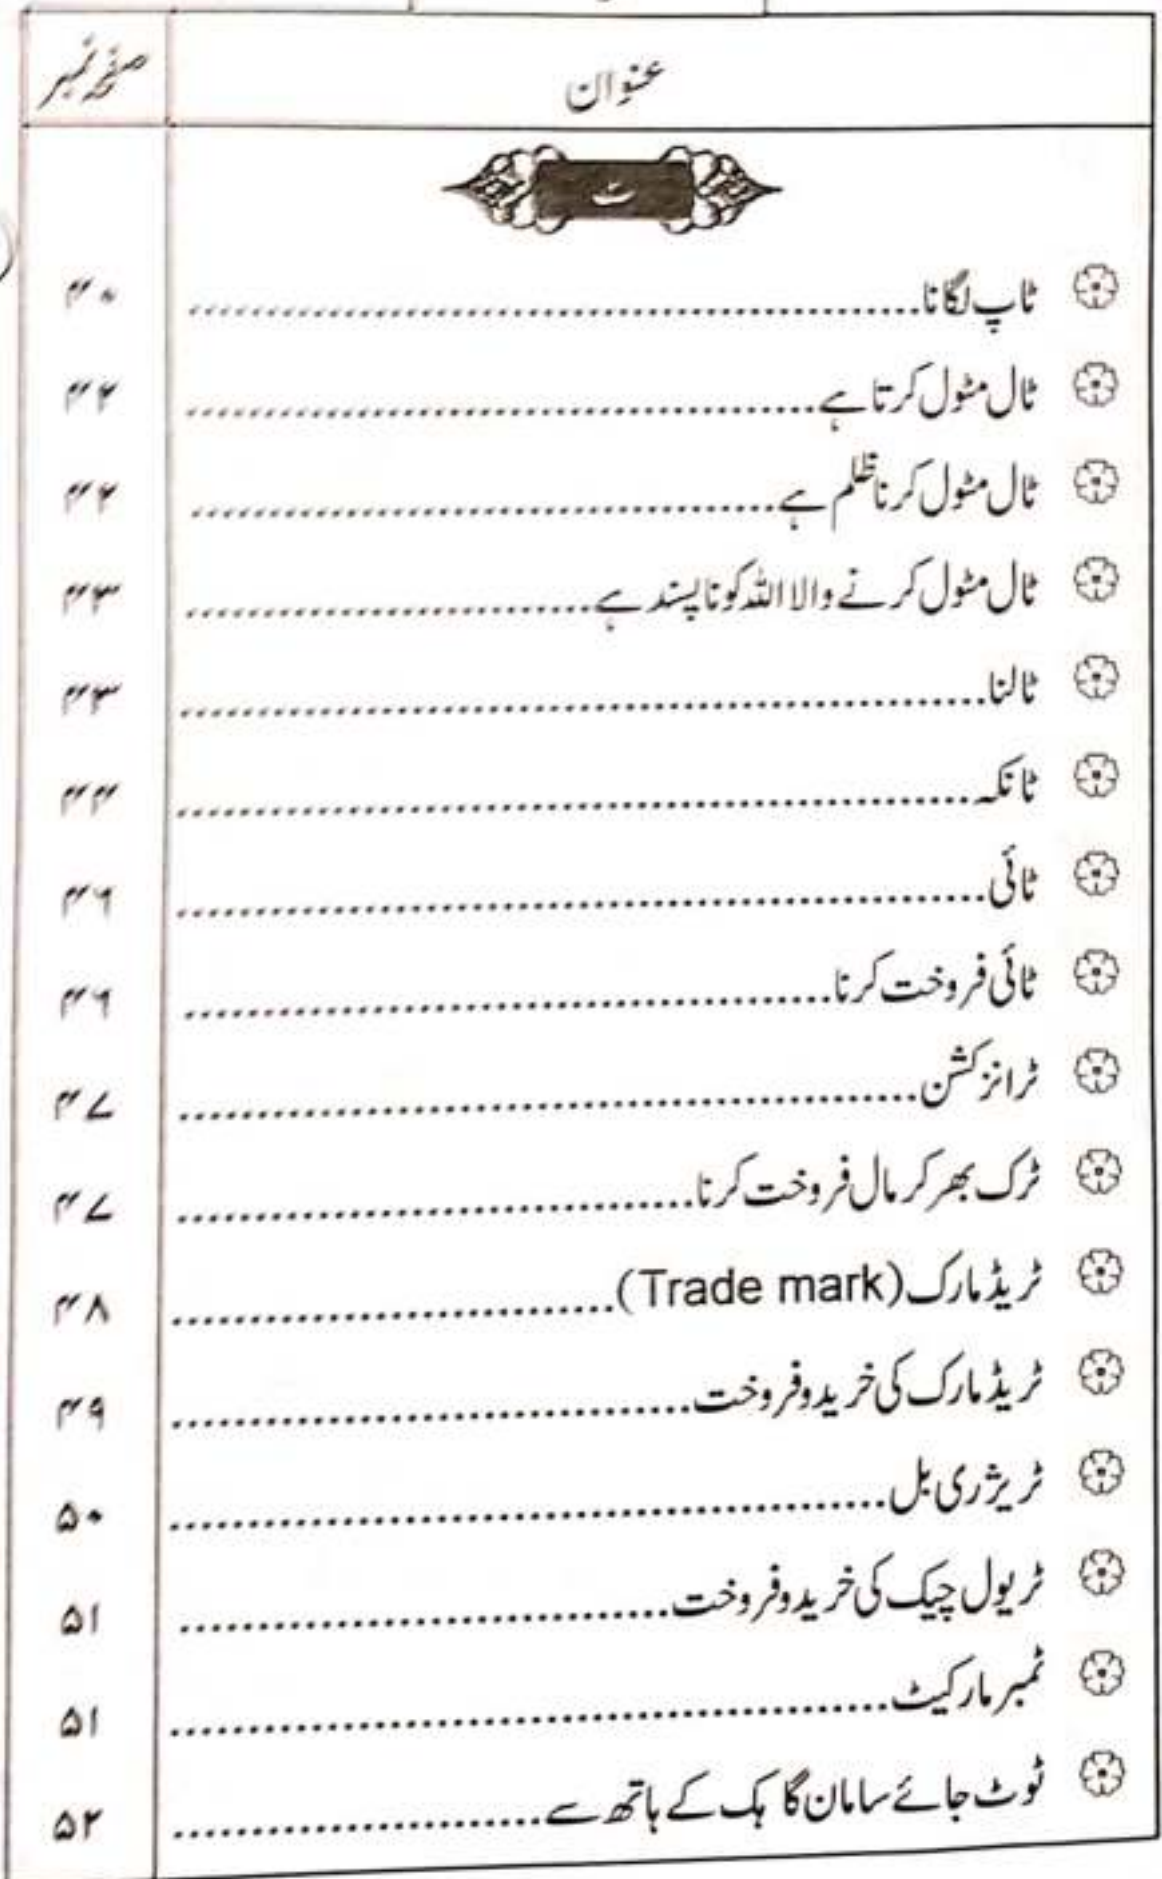 عنوان صفحہ نمبر
ٹ
ٹاپ لگانا ۴۰
ٹال مٹول کرتا ہے ۴۲
ٹال مٹول کرنا ظلم ہے ۴۲
ٹال مٹول کرنے والا اللہ کو ناپسند ہے ۴۳
ٹالنا ۴۳
ٹانکہ ۴۴
ٹائی ۴۶
ٹائی فروخت کرنا ۴۶
ٹرانزکشن ۴۷
ٹرک بھر کر مال فروخت کرنا ۴۷
ٹریڈ مارک (Trade mark) ۴۸
ٹریڈ مارک کی خرید و فروخت ۴۹
ٹریژری بل ۵۰
ٹریول چیک کی خرید و فروخت ۵۱
ٹمبر مارکیٹ ۵۱
ٹوٹ جائے سامان گاہک کے ہاتھ سے ۵۲